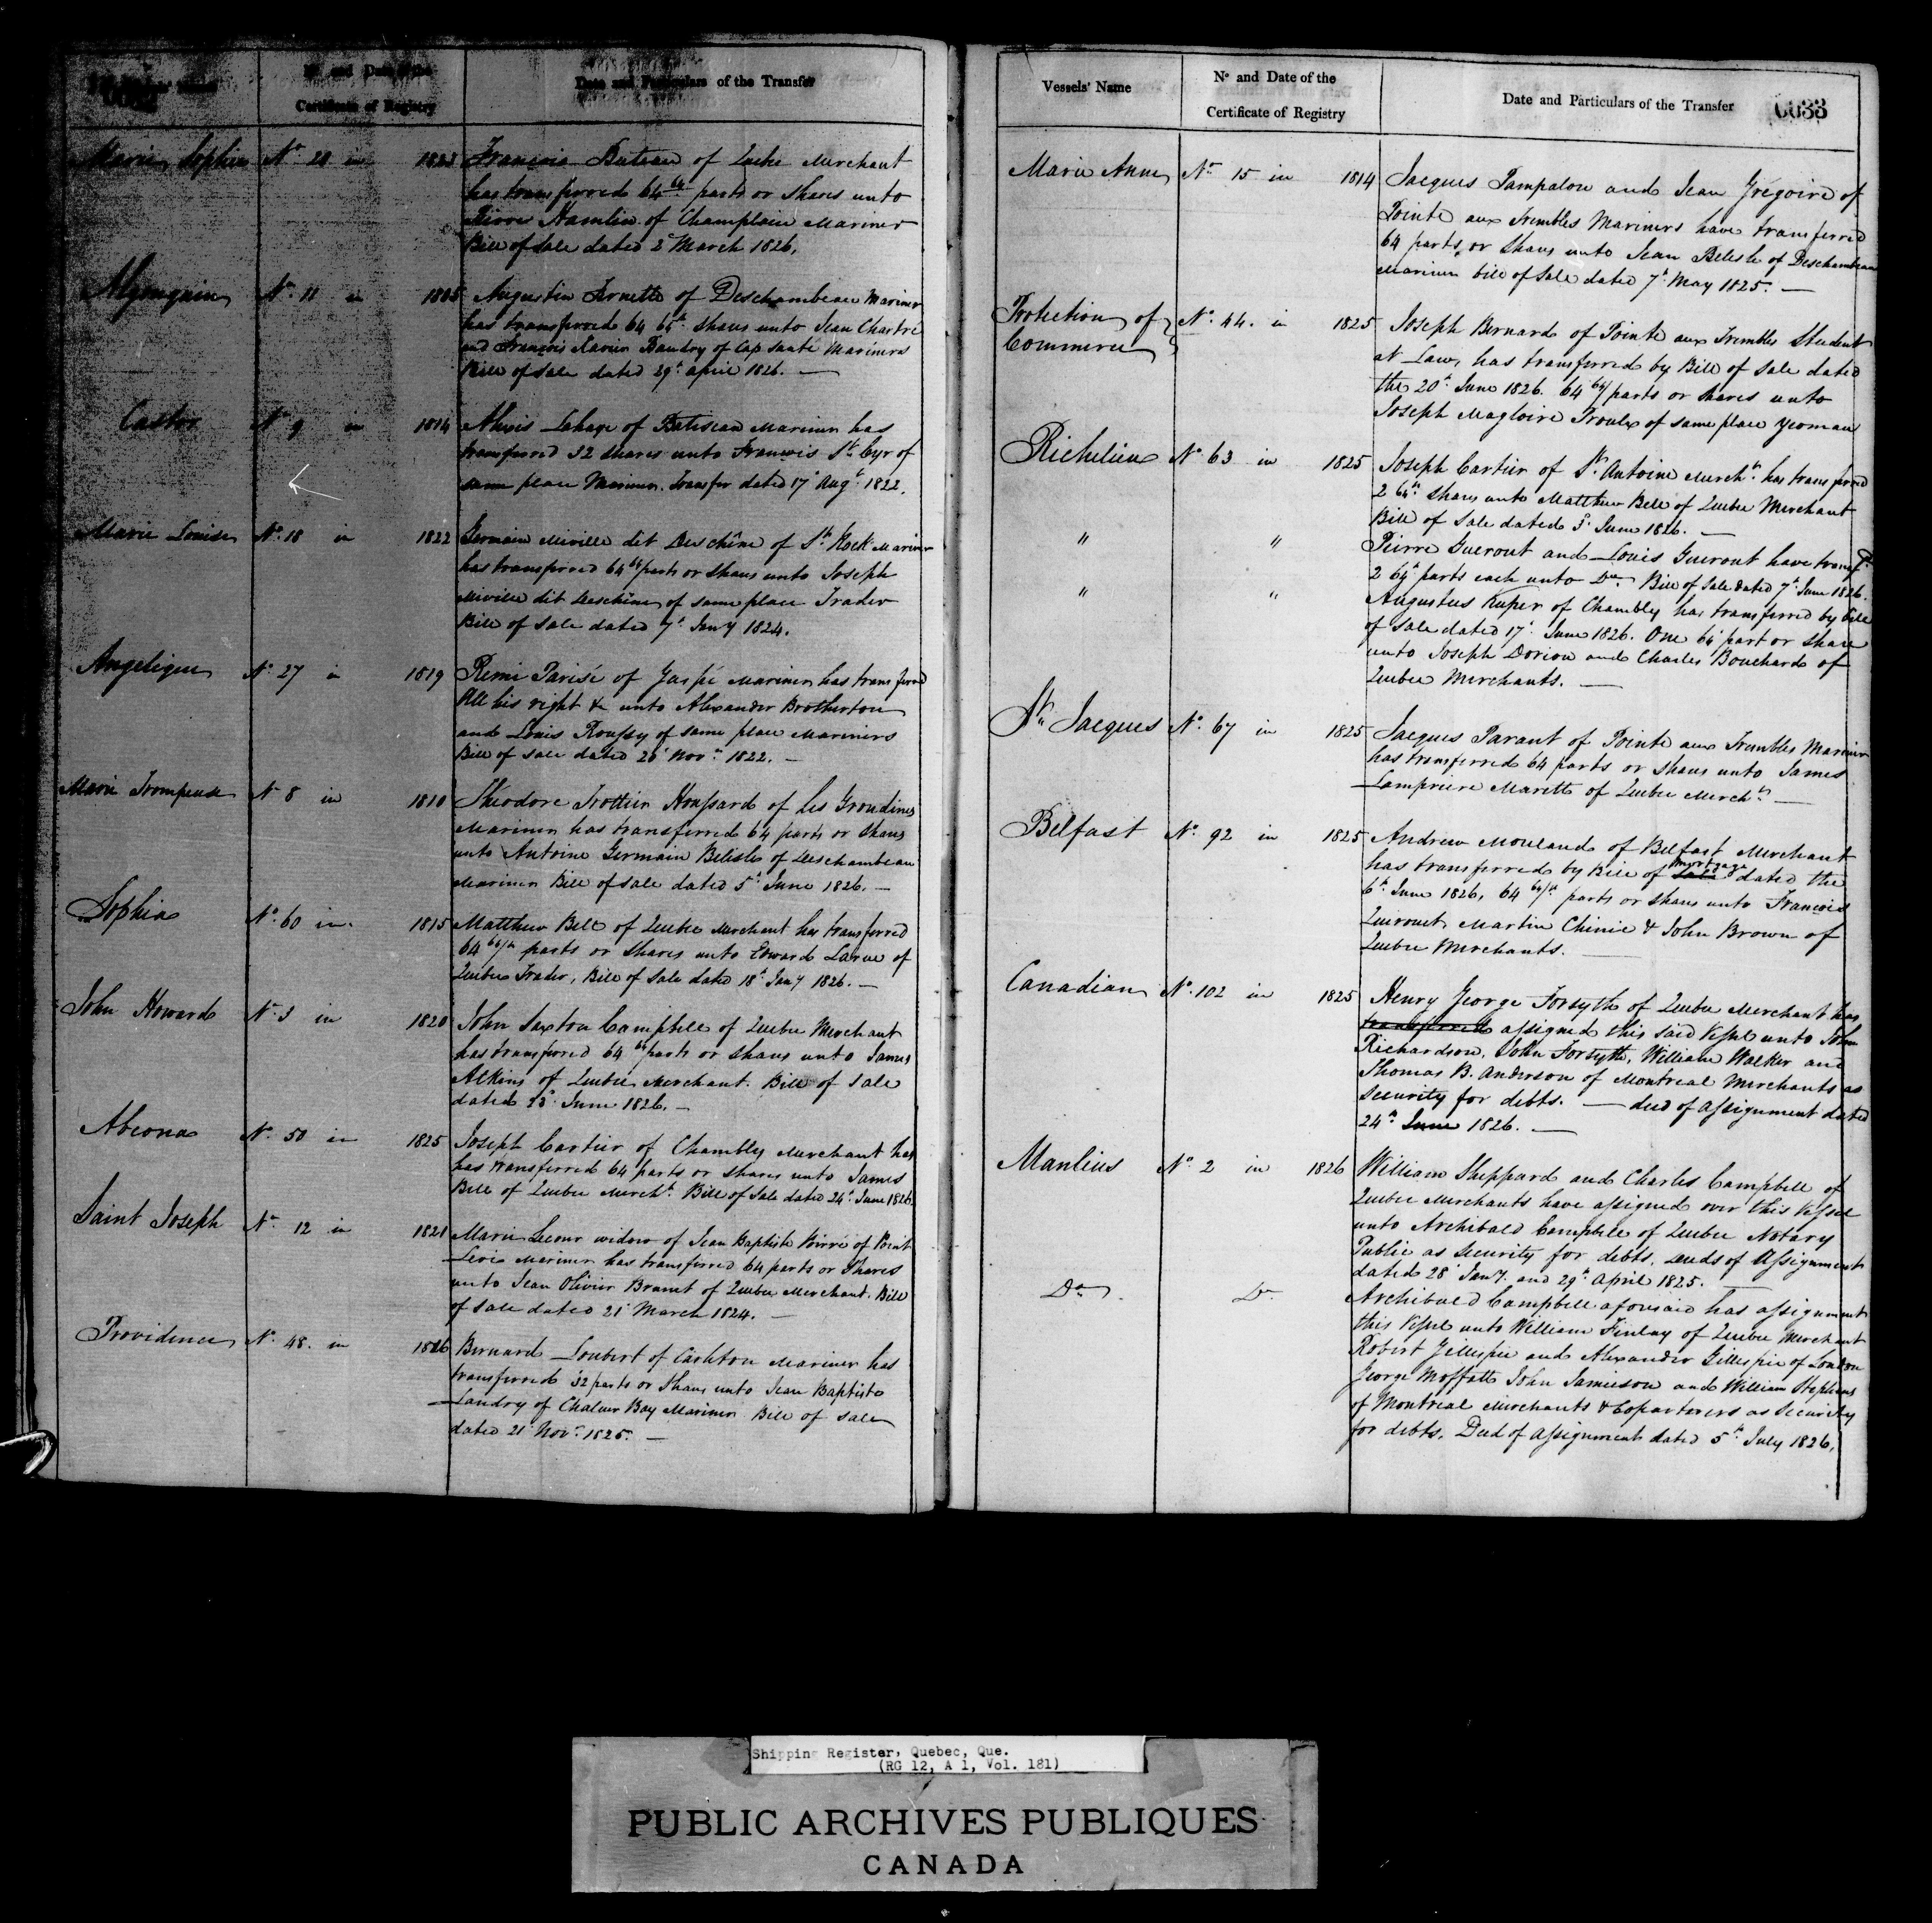 Certificate of Registry
Date and Particulars of the Transfer
Marie Sophie No 20 in 1823 François Buteau of Quebec Merchant
has transferred 64 64 parts or shares unto
Pierre Hamlin of Champlain Mariner
Bill of Sale dated 2d March 1826.
Algonquin No 11 in 1805 Augustin Arnette of Deschambeau Mariner
has transferred 64 65th shares unto Jean Chartré
and François Xavier Baudry of Cap Santé Mariners
Bill of Sale dated 29th April 1826. —
Castor No 9 in 1814 Alexis Lahaye of Batiscan Mariner has
transferred 32 shares unto François St Cyr of
same place Mariner. Transfer dated 17th Augt 1822.
Marie Louise No 18 in 1822 Germain Miville dit Deschêne of St Rock Mariner
has transferred 64 64 parts or shares unto Joseph
Miville dit Deschêne of same place Trader
Bill of Sale dated 7th Jany 1824.
Angelique No 27 in 1819 Remi Parisé of Gaspé Mariner has transferred
All his right & unto Alexander Brotherton
and Louis Roussy of same place Mariners
Bill of Sale dated Novr 1822. —
Marie Trompeuse No 8 in 1810 Theodore Trottier Houssard of Les Grondines
Mariner has transferred 64 parts or shares
unto Antoine Germain Belisle of Deschambeau
Mariner Bill of Sale dated 5th June 1826. —
Sophia No 60 in 1815 Matthew Bell of Quebec Merchant has transferred
64 64/th parts or shares unto Edward Larue of
Quebec Trader, Bill of Sale dated 18th Jany 1826. —
John Howard No 3 in 1820 John Saxton Campbell of Quebec Merchant
has transferred 64 64 parts or shares unto James
Atkins of Quebec Merchant. Bill of Sale
dated 23d June 1826. —
Abeona No 50 in 1825 Joseph Cartier of Chambly Merchant has
has transferred 64 parts or shares unto James
Bell of Quebec Mercht. Bill of Sale dated 24th June 1826.
Saint Joseph No 12 in 1821 Marie Lecour widow of Jean Baptiste Poirré of Point
Levi Mariner has transferred 64 parts or Shares
unto Jean Olivier Brunet of Quebec Merchant. Bill
of Sale dated 21st March 1824. —
Providence No 48 in 1826 Bernard Loubert of Carleton Mariner has
transferred 32 parts or Shares unto Jean Baptiste
Landry of Chaleur Bay Mariner Bill of Sale
dated 21st Novr 1825. —
0033
Vessels' Name
No and Date of the
Certificate of Registry
Date and Particulars of the Transfer
Marie Anne No 15 in 1814 Jacques Pampalon and Jean Grégoire of
Pointe aux Trembles Mariners have transferred
64 parts or shares unto Jean Belisle of Deschambeau
Mariner bill of Sale dated 7th May 1825. —
Protection of Commerce No 44. in 1825 Joseph Bernard of Pointe aux Trembles Student
at Law, has transferred by Bill of Sale dated
the 20th June 1826. 64 64/ parts or shares unto
Joseph Magloire Proulx of same place Yeoman
Richelieu No 63 in 1825 Joseph Cartier of St Antoine Mercht has transferred
2 64th shares unto Matthew Bell of Quebec Merchant
Bill of Sale dated 5th June 1826. —
" " Pierre Guerout and Louis Guerout have transfd
2 64th parts each unto Do Bill of Sale dated 7th June 1826.
" " Augustus Kuper of Chambly has transferred by bill
of Sale dated 17th June 1826. One 64 part or share
unto Joseph Dorion and Charles Bouchard of
Quebec Merchants. —
St Jacques No 67 in 1825 Jacques Parant of Pointe aux Trembles Mariner
has transferred 64 parts or shares unto James
Lampriere Marette of Quebec Mercht. —
Belfast No 92 in 1825 Andrew Mouland of Belfast Merchant
has transferred by Bill of Sale mortgage dated the
6th June 1826, 64 64/th parts or shares unto François
Quirouet, Martin Chinic & John Brown of
Quebec Merchants. —
Canadian No 102 in 1825 Henry George Forsyth of Quebec Merchant has
transferred assigned this said Vessel unto John
Richardson, John Forsyth, William Walker and
Thomas B. Anderson of Montreal Merchants as
security for debts. — deed of Assignment dated
24th June 1826. —
Manlius No 2 in 1826 William Sheppard and Charles Campbell of
Quebec Merchants have assigned over this Vessel
unto Archibald Campbell of Quebec Notary
Public as security for debts, deeds of Assignment
dated 28th Jany. and 29th April 1825. —
Do Do Archibald Campbell aforesaid has assignment
this Vessel unto William Finlay of Quebec Merchant
Robert Gillespie and Alexander Gillespie of London
George Moffatt John Jamieson and William Stephens
of Montreal Merchants & Copartners as security
for debts. Deed of Assignment dated 5th July 1826.
Shipping Register, Quebec, Que.
(RG 12, A 1, Vol. 181)
PUBLIC ARCHIVES PUBLIQUES
CANADA